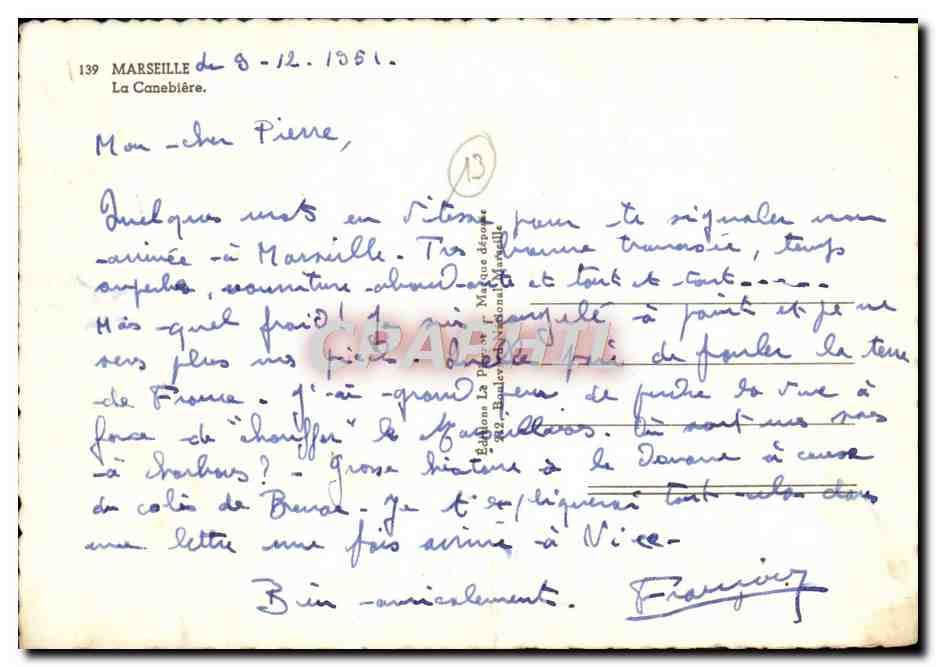 139 MARSEILLE du 9-12.1951.
La Canebière.
Mon cher Pierre,
13
Quelques mots en vitesse pour te signaler mon
arrivée à Marseille. Très bonne traversée, temps
superbe, nourriture abondante et tout et tout.....
Mais quel froid! Je suis congelé à point et je ne
sens plus mes pieds. Quelle joie de fouler la terre
de France. J'ai grand peur de perdre la vue à
force de "chouffer" les Marseillaises. Où sont mes
à charbous? - Grosse histoire à la Douane à cause
du colis de - Je t'expliquerai tout cela dans
une lettre une fois arrivé à Nice -
Bien amicalement. François
Editions La Marque déposée
242, Boulevard National Marseille
CPAPHIL